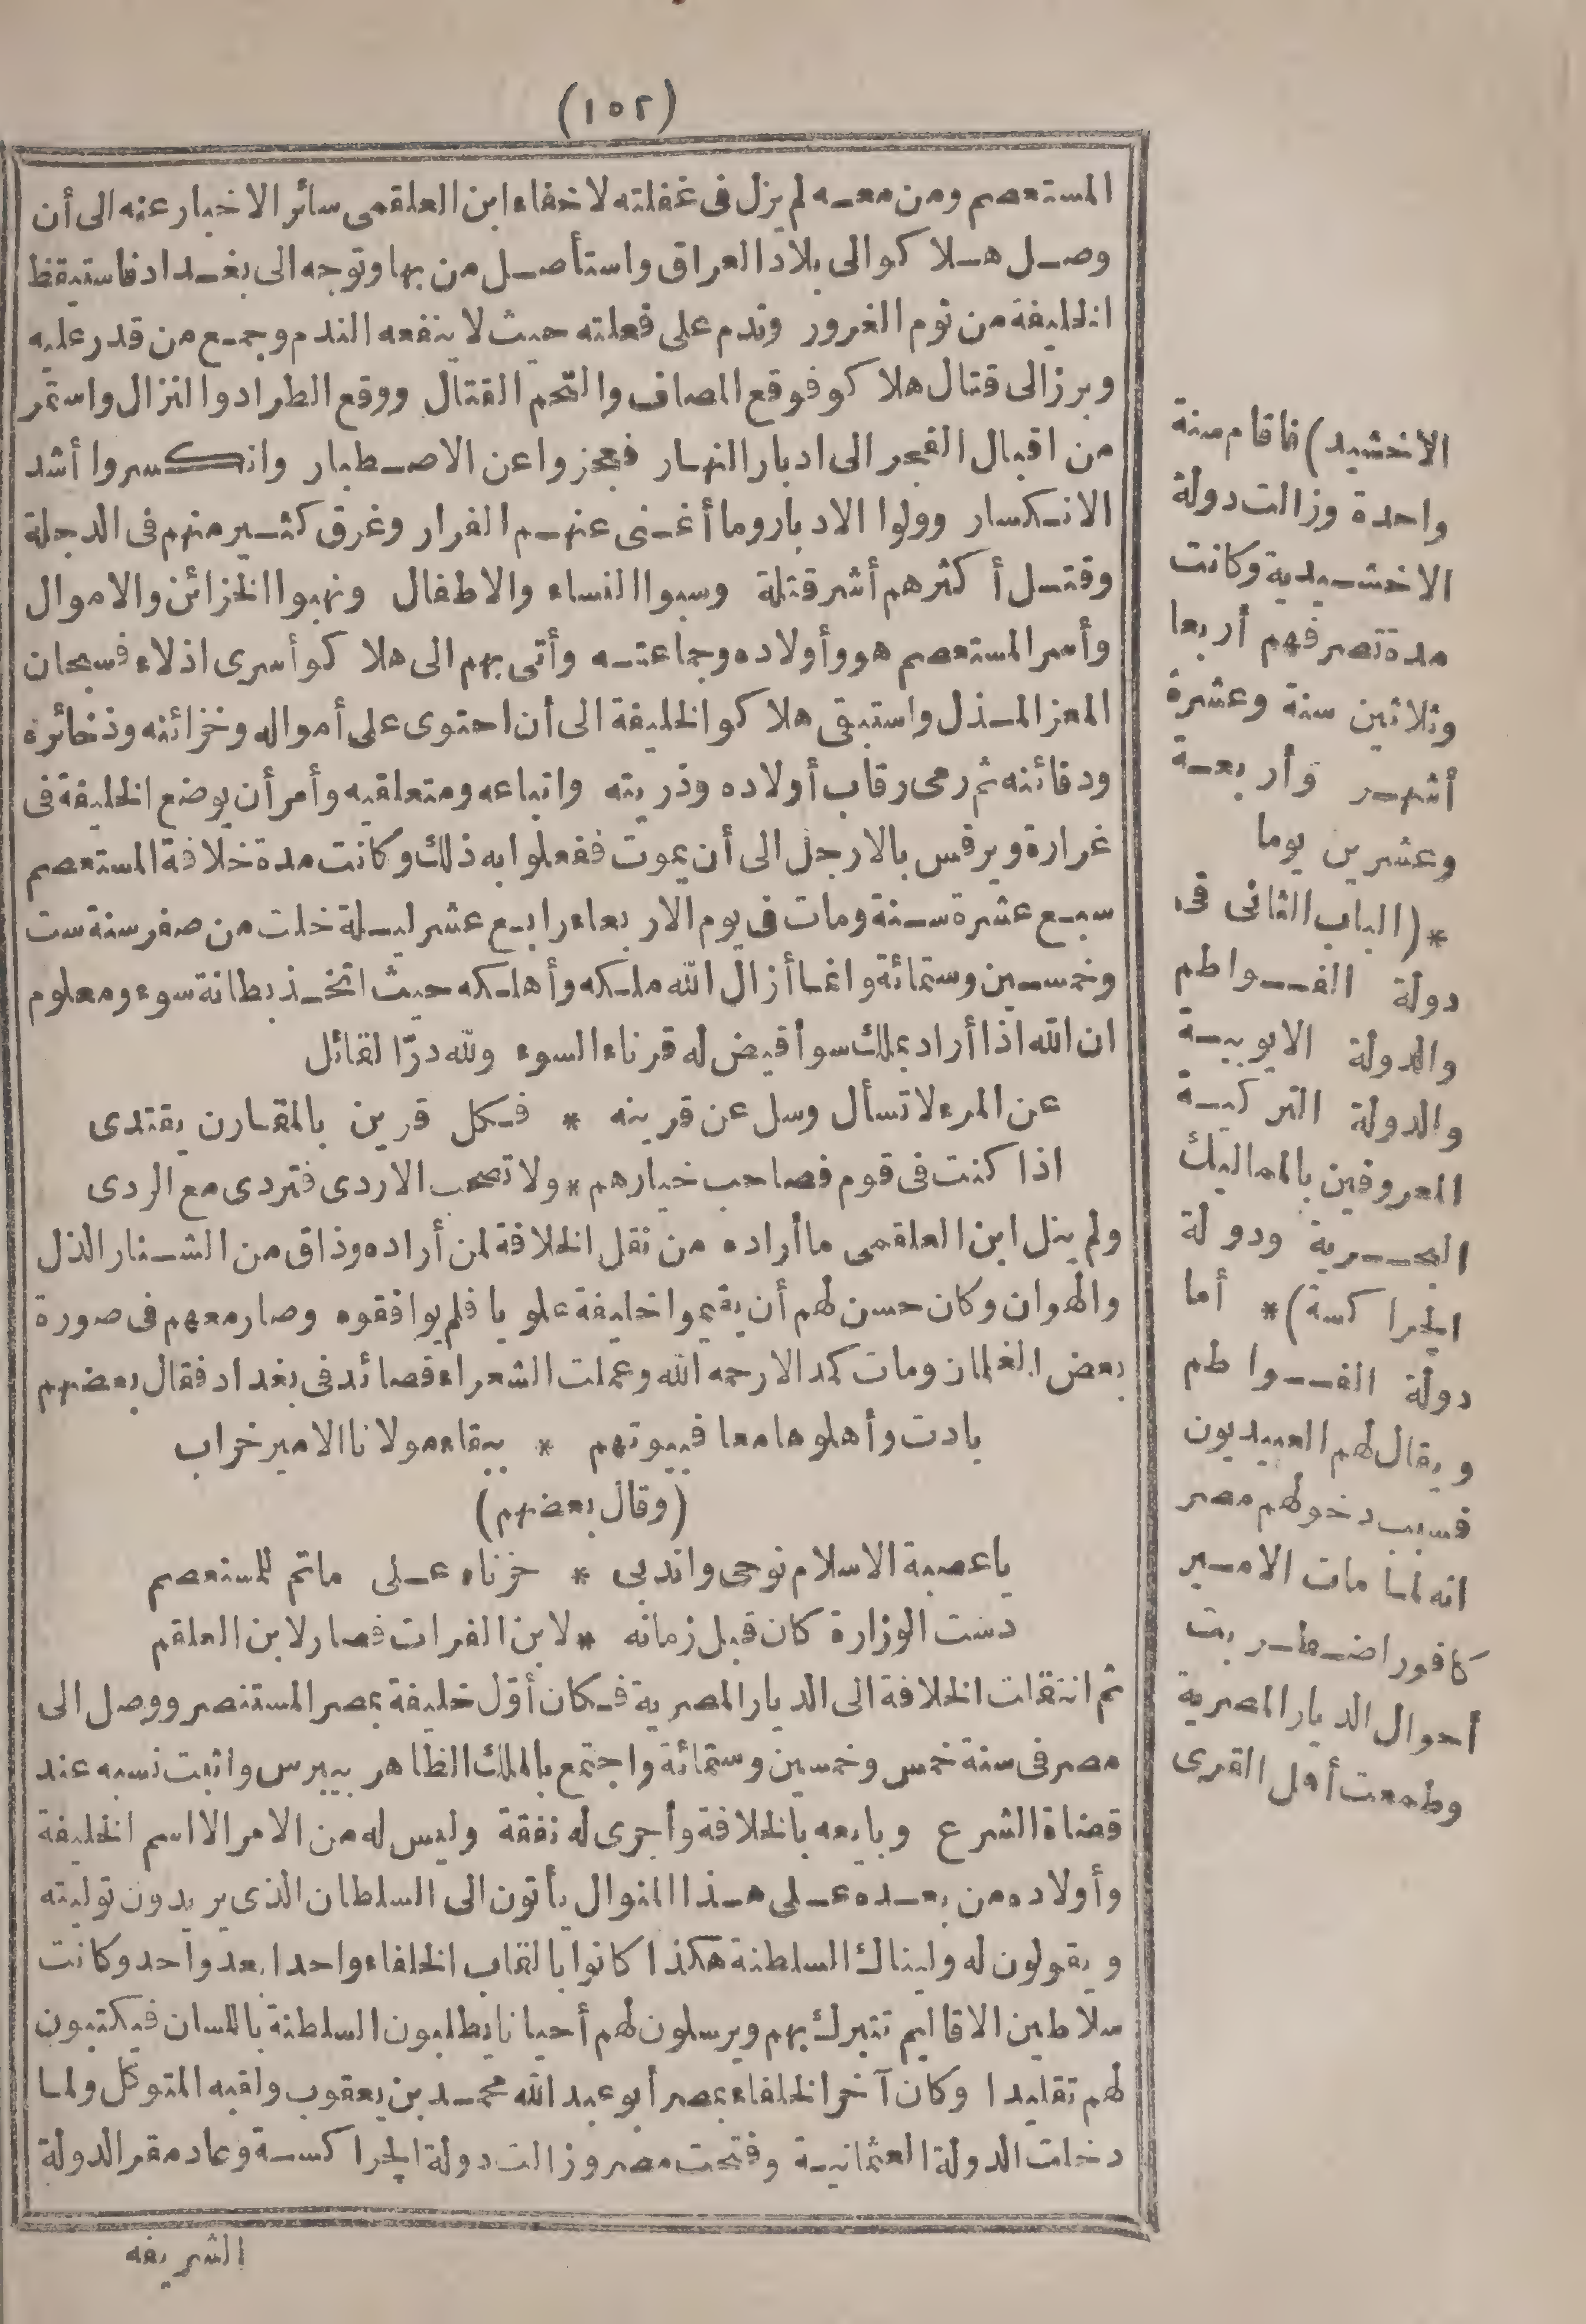 (١٥٢)
المستعصم ومن معه لم يزل فى غفلته لاخفاء ابن العلقمى سائر الاخبار عنه الى أن
وصل هلاكو الى بلاد العراق واستأصل من بها وتوجه الى بغداد فاستيقظ
الخليفة من نوم الغرور وندم على فعلته حيث لا ينفعه الندم وجمع من قدر عليه
وبرز الى قتال هلاكو فوقع المصاف والتحم القتال ووقع الطراد والنزال واستمر
من اقبال الفجر الى ادبار النهار فعجزوا عن الاصطبار وانكسروا أشد
الانكسار وولوا الادبار وما أغنى عنهم الفرار وغرق كثير منهم فى الدجلة
وقتل أكثرهم أشر قتلة وسبوا النساء والاطفال ونهبوا الخزائن والاموال
وأسر المستعصم هو وأولاده وجماعته وأتى بهم الى هلاكو أسرى اذلاء فسبحان
المعز المذل واستبقى هلاكو الخليفة الى أن احتوى على أمواله وخزائنه وذخائره
ودفائنه ثم رمى رقاب أولاده وذريته واتباعه ومتعلقيه وأمر أن يوضع الخليفة فى
غرارة ويرفس بالارجل الى أن يموت ففعلوا به ذلك وكانت مدة خلافة المستعصم
سبع عشرة سنة ومات فى يوم الاربعاء رابع عشر ليلة خلت من صفر سنة ست
وخمسين وستمائة وانما أزال الله ملكه وأهلكه حيث اتخذ بطانة سوء ومعلوم
ان الله اذا أراد بملك سوأ قيض له قرناء السوء ولله درّ القائل
عن المرء لا تسأل وسل عن قرينه * فكل قرين بالمقارن يقتدى
اذا كنت فى قوم فصاحب خيارهم * ولا تصحب الاردى فتردى مع الردى
ولم ينل ابن العلقمى ما أراده من نقل الخلافة لمن أراده وذاق من الشنار الذل
والهوان وكان حسن لهم أن يقيموا خليفة علويا فلم يوافقوه وصار معهم فى صورة
بعض الغلمان ومات كمدا لا رحمه الله وعملت الشعراء قصائد فى بغداد فقال بعضهم
بادت وأهلوها معا فبيوتهم * ببقاء مولانا الامير خراب
(وقال بعضهم)
يا عصبة الاسلام نوحى واندبى * حزناء على ماتم للمستعصم
دست الوزارة كان قبل زمانه * لابن الفرات فصار لابن العلقم
ثم انتقلت الخلافة الى الديار المصرية فكان أوّل خليفة بمصر المستنصر ووصل الى
مصر فى سنة خمس وخمسين وستمائة واجتمع بالملك الظاهر بيبرس واثبت نسبه عند
قضاة الشرع وبايعه بالخلافة وأجرى له نفقة وليس له من الامر الا اسم الخليفة
وأولاده من بعده على هذا المنوال يأتون الى السلطان الذى يريدون توليته
ويقولون له وليناك السلطنة هكذا كانوا بالقاب الخلفاء واحدا بعد واحد وكانت
سلاطين الاقاليم تتبرك بهم ويرسلون لهم أحيانا يطلبون السلطنة باللسان فيكتبون
لهم تقليدا وكان آخر الخلفاء بمصر أبو عبد الله محمد بن يعقوب ولقبه المتوكل ولما
دخلت الدولة العثمانية وفتحت مصر وزالت دولة الجراكسة وعاد مقر الدولة
الشريفه
الاخشيد) فاقام سنة
واحدة وزالت دولة
الاخشيدية وكانت
مدة تصرفهم أربعا
وثلاثين سنة وعشرة
أشهر وأربعة
وعشرين يوما
*(الباب الثانى فى
دولة الفواطم
والدولة الايوبية
والدولة التركية
المعروفين بالمماليك
البحرية ودولة
الجراكسة)* أما
دولة الفواطم
ويقال لهم العبيديون
فسبب دخولهم مصر
انه لما مات الامير
كافور اضطربت
أحوال الديار المصرية
وطمعت أهل القرى